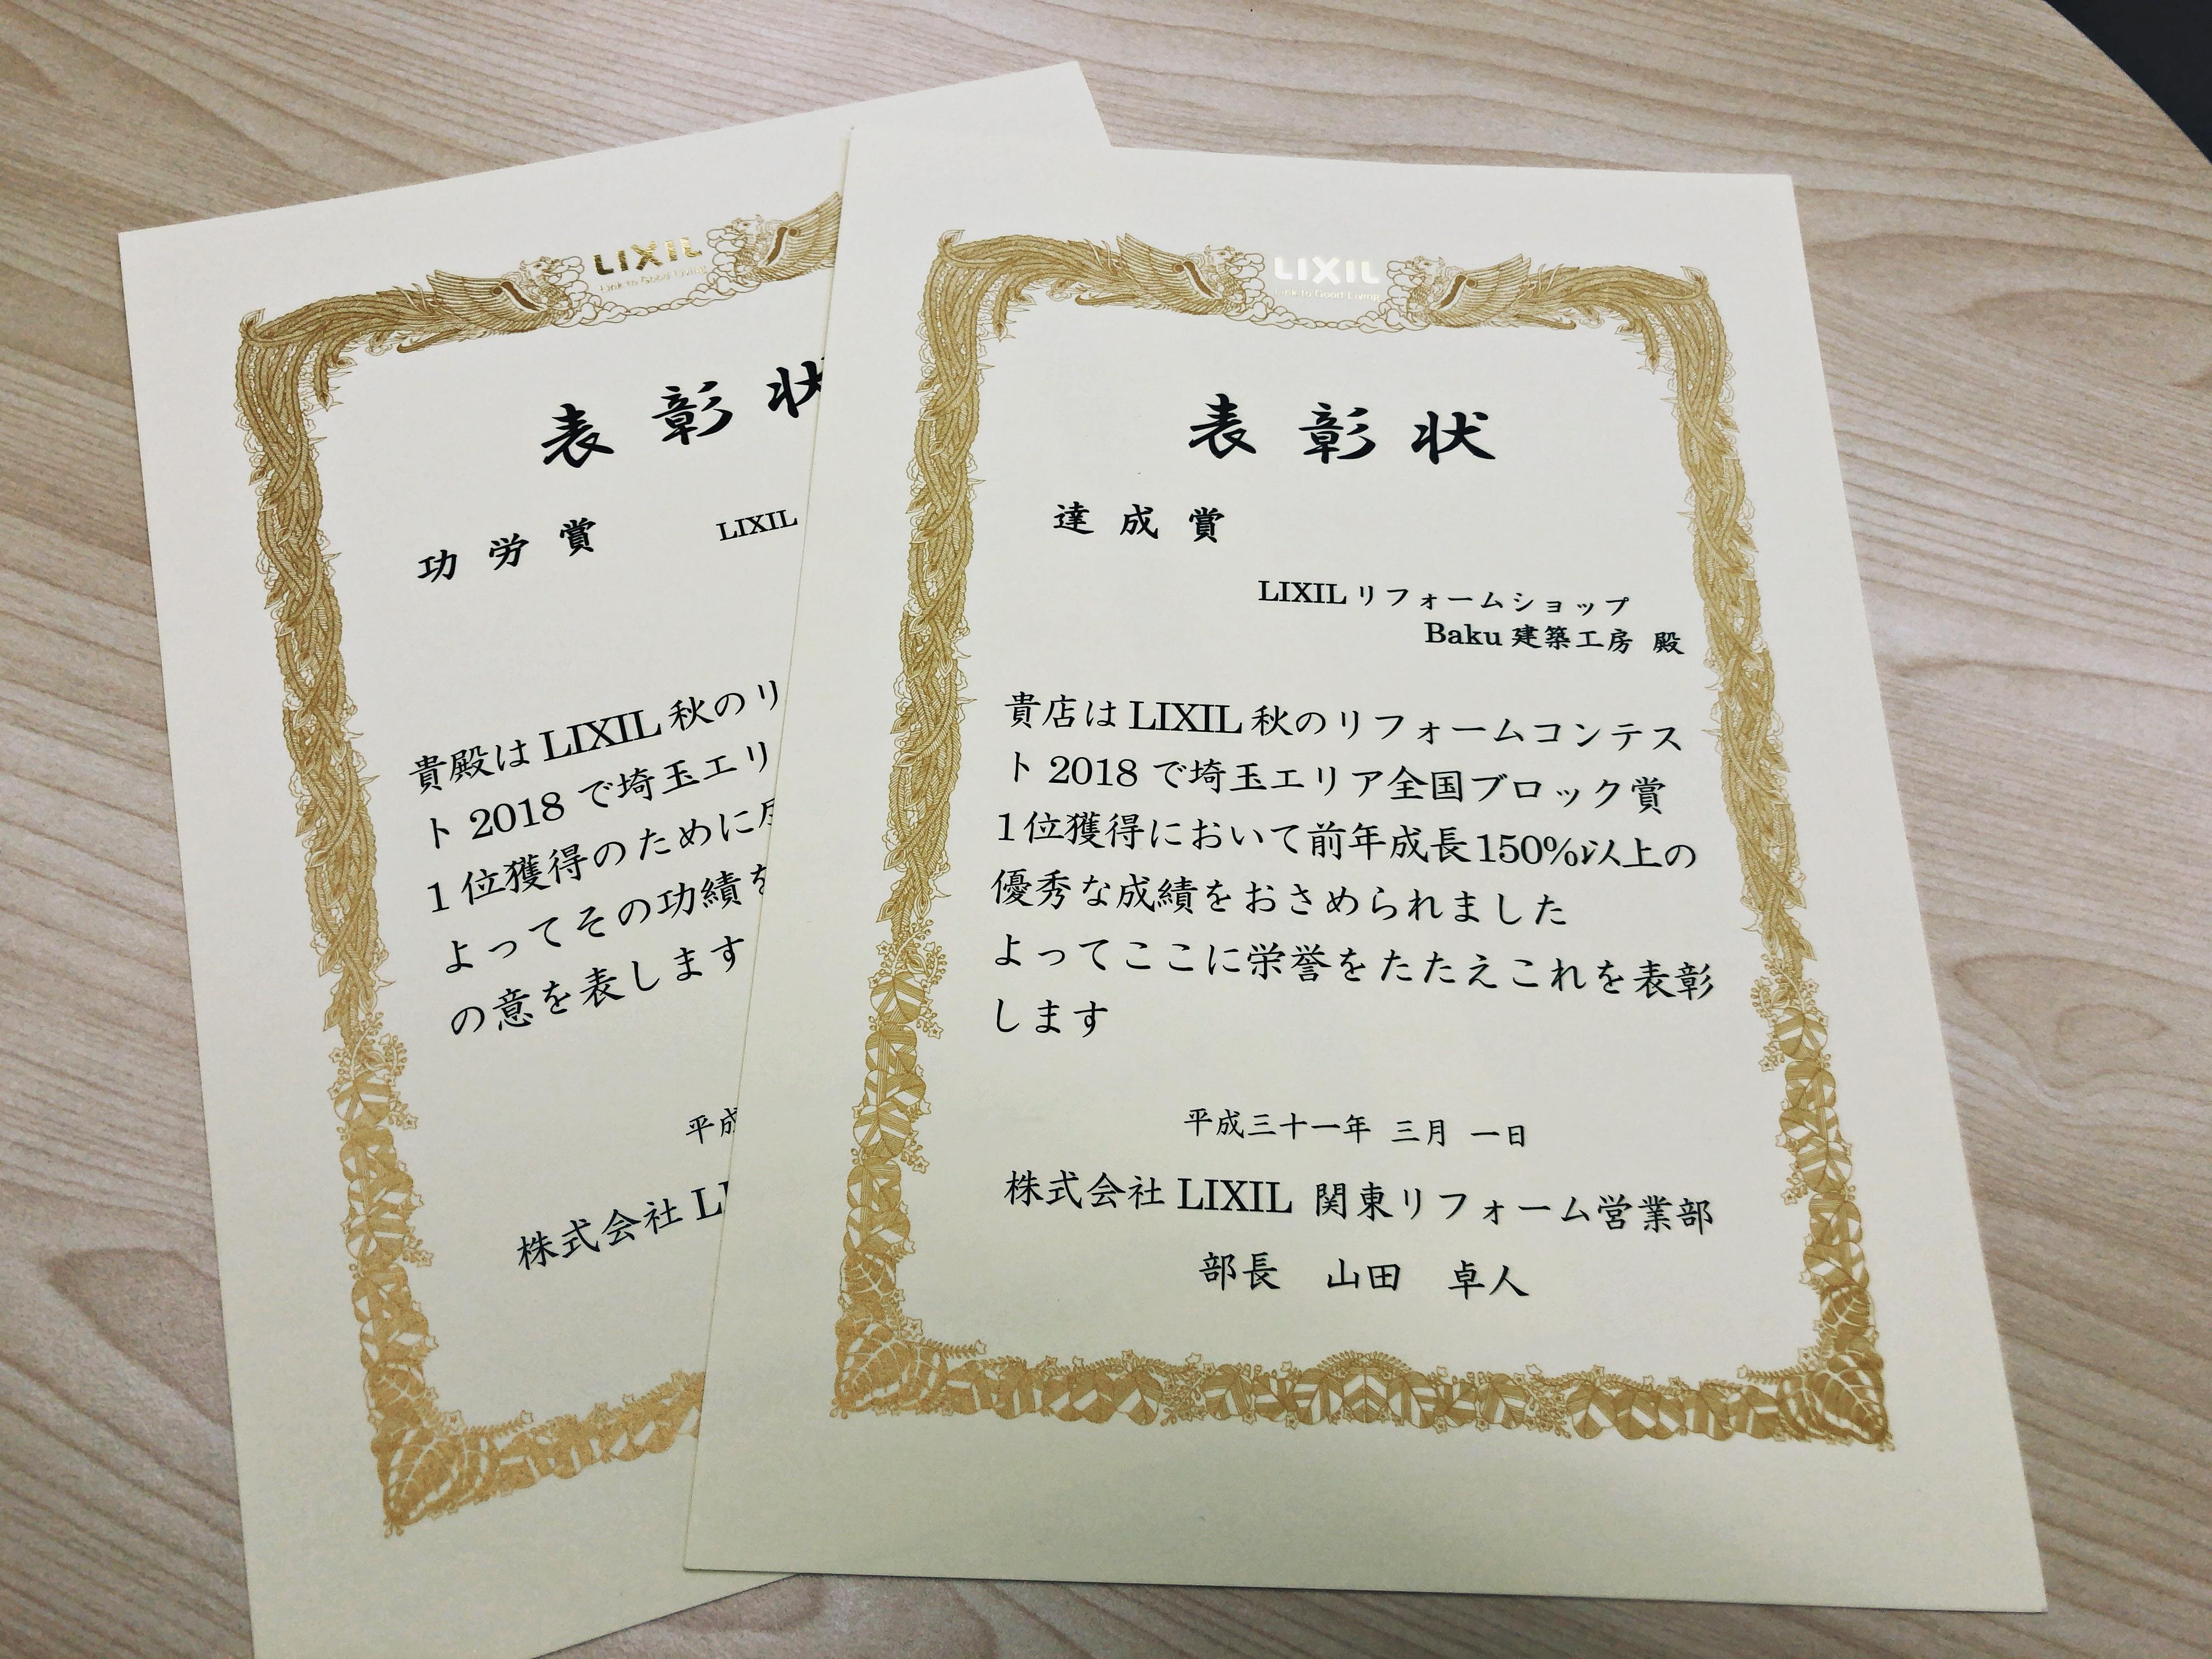 LIXIL
Link to Good Living
表彰状
功労賞
LIXIL
貴殿は LIXIL 秋のリ
ト 2018 で埼玉エリ
1 位獲得のために
よってその功績を
の意を表します
平成
株式会社 LI
LIXIL
Link to Good Living
表彰状
達成賞
LIXIL リフォームショップ
Baku 建築工房 殿
貴店は LIXIL 秋のリフォームコンテス
ト 2018 で埼玉エリア全国ブロック賞
1位獲得において前年成長150%以上の
優秀な成績をおさめられました
よってここに栄誉をたたえこれを表彰
します
平成三十一年 三月 一日
株式会社 LIXIL 関東リフォーム営業部
部長 山田 卓人